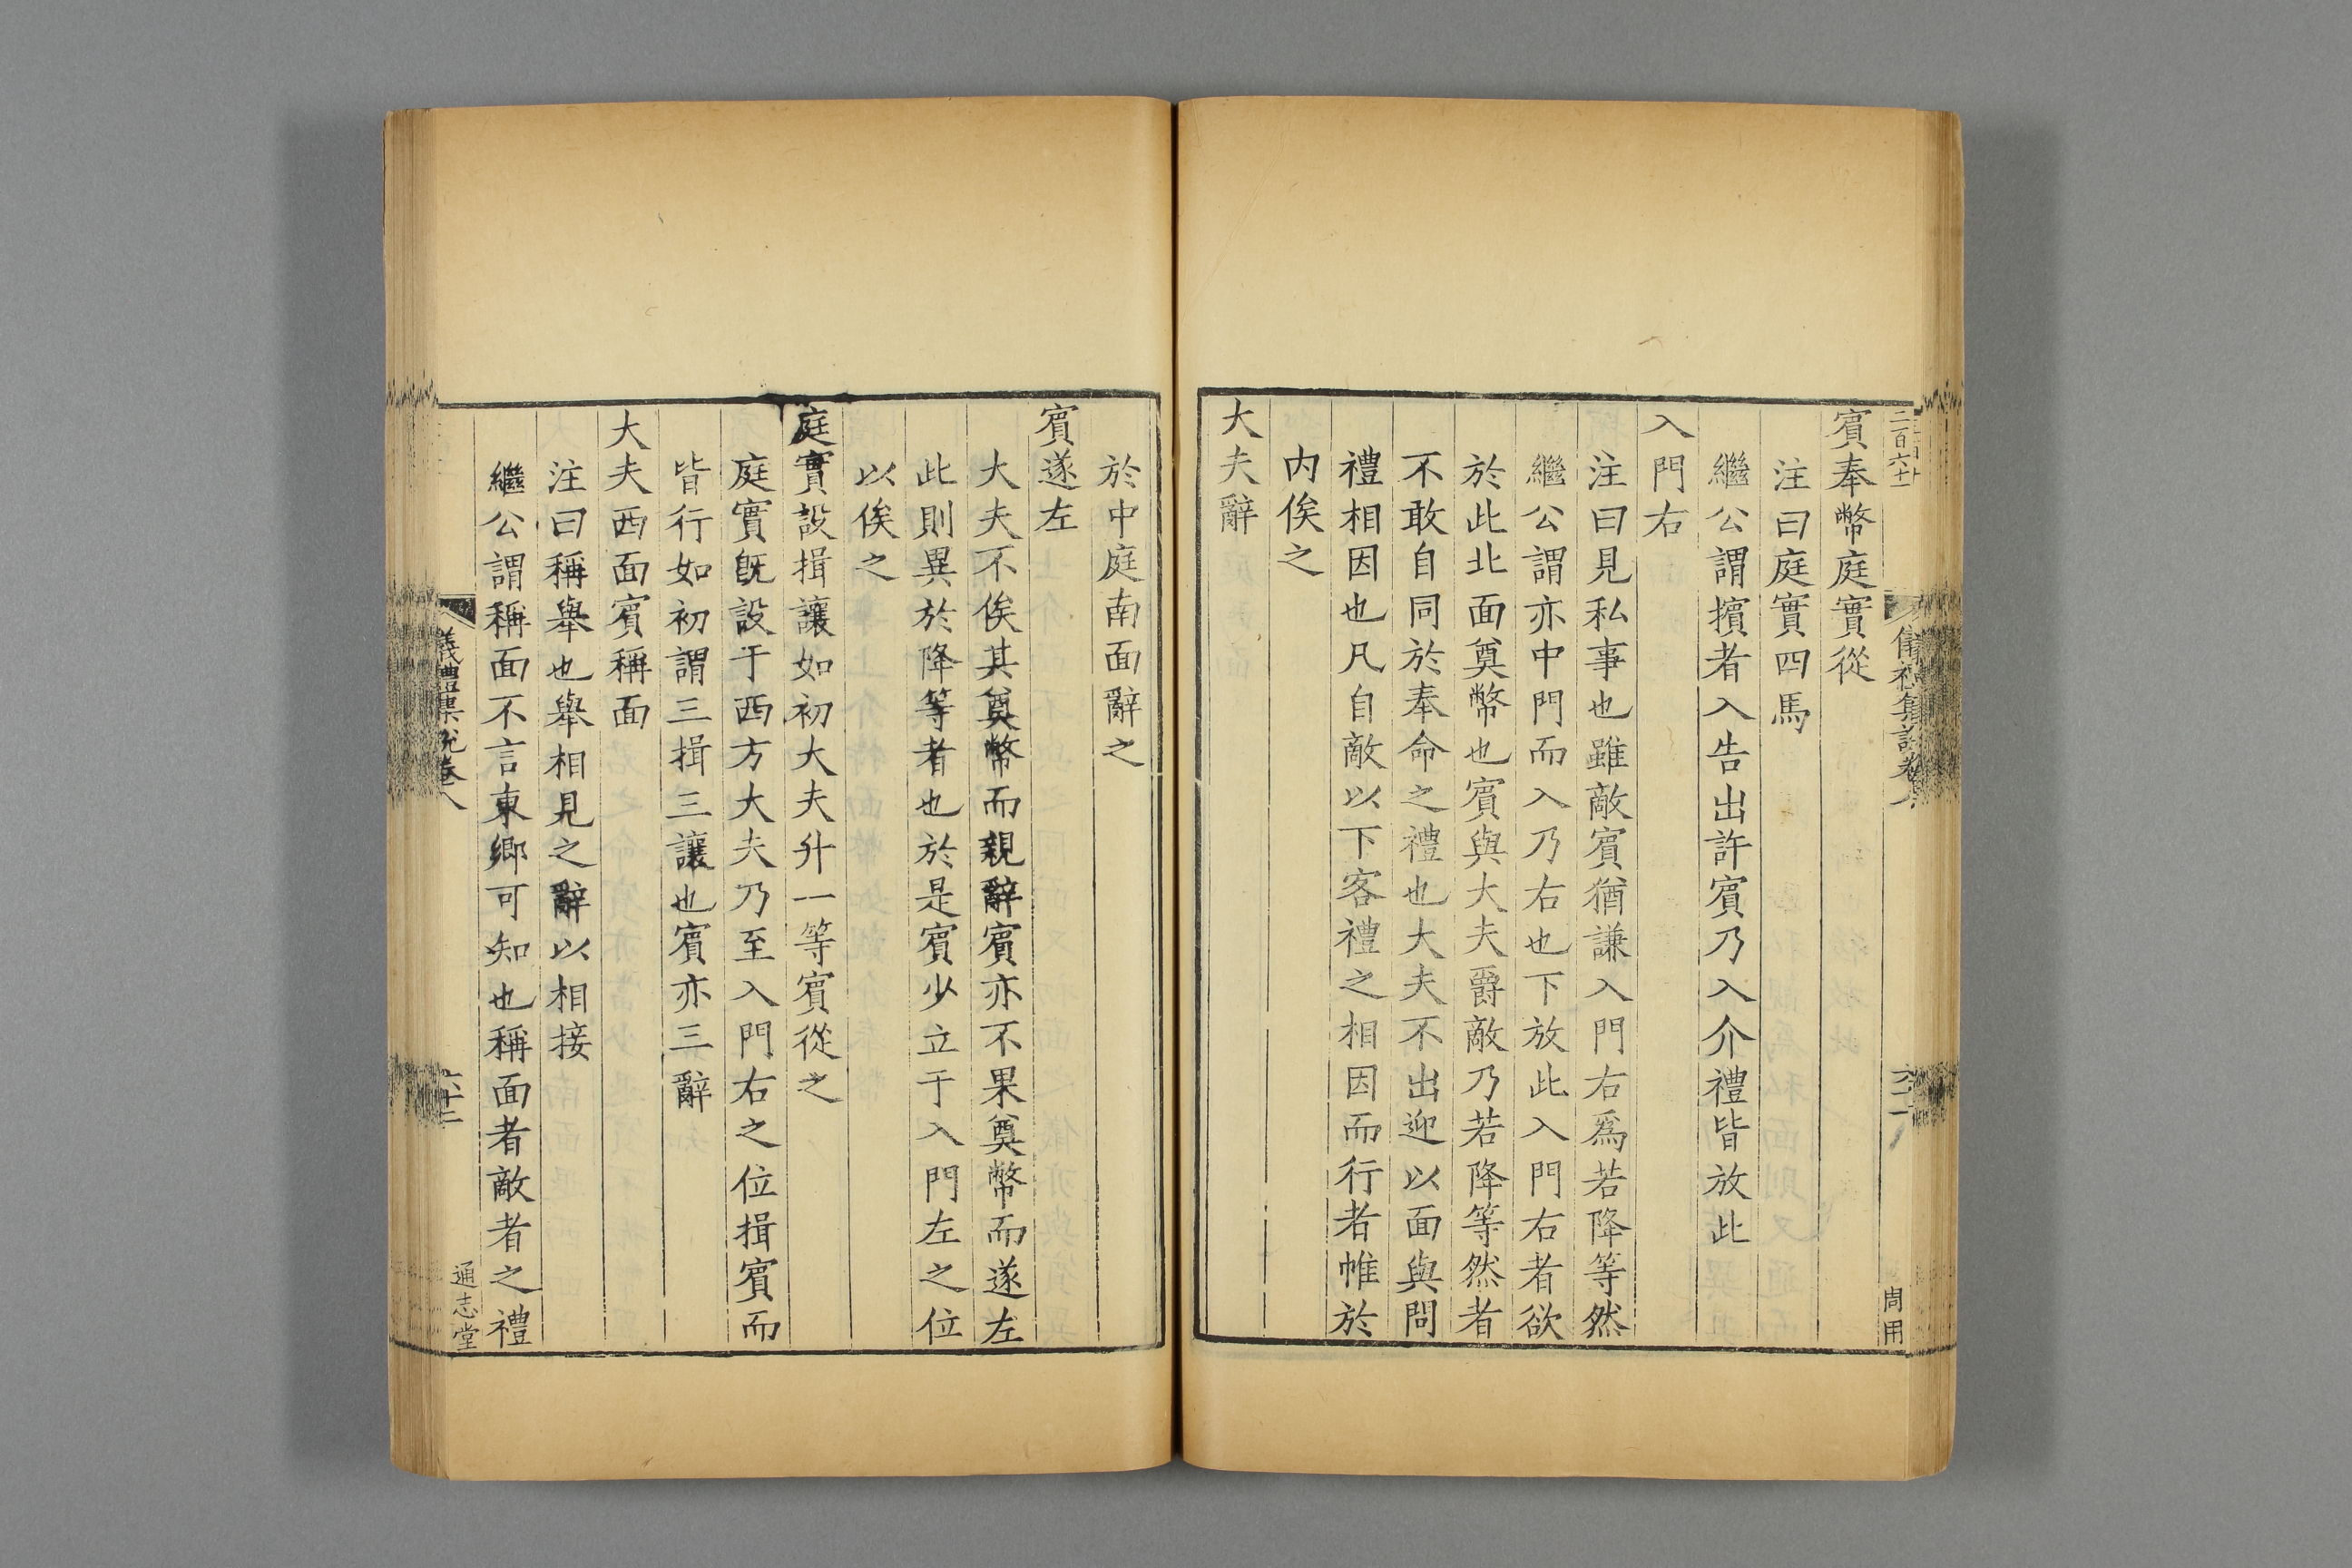 二百六十一
儀禮集說卷八
周用
賓奉幣庭實從
注曰庭實四馬
繼公謂擯者入告出許賓乃入介禮皆放此
入門右
注曰見私事也雖敵賓猶謙入門右爲若降等然
繼公謂亦中門而入乃右也下放此入門右者欲
於此北面奠幣也賓與大夫爵敵乃若降等然者
不敢自同於奉命之禮也大夫不出迎以面與問
禮相因也凡自敵以下客禮之相因而行者帷於
内俟之
大夫辭
於中庭南面辭之
賓遂左
大夫不俟其奠幣而親辭賓亦不果奠幣而遂左
此則異於降等者也於是賓少立于入門左之位
以俟之
庭實設揖讓如初大夫升一等賓從之
庭實既設于西方大夫乃至入門右之位揖賓而
皆行如初謂三揖三讓也賓亦三辭
大夫西面賓稱面
注曰稱舉也舉相見之辭以相接
繼公謂稱面不言東鄉可知也稱面者敵者之禮
儀禮集說卷八
六十二
通志堂